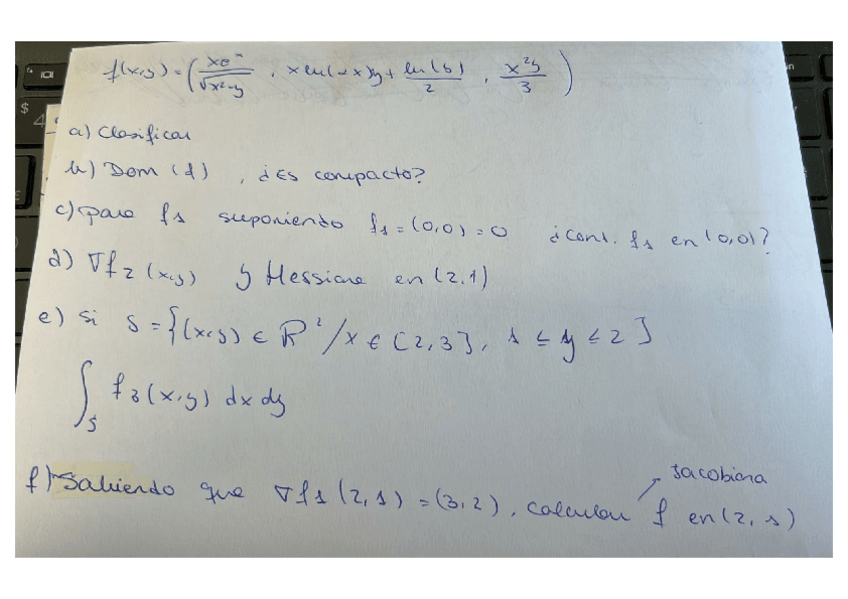 f(x,y) = ( xe / √x²-y , x ln( x)y + ln(5) / 2 , x²y / 3 )
a) Clasificar
b) Dom (f) , ¿Es compacto?
c) para f1 suponiendo f1 = (0,0) = 0 ¿Cont. f1 en (0,0)?
d) ∇f2 (x,y) y Hessiana en (2,1)
e) si S = {(x,y) ∈ R² / x ∈ [2,3], 1 ≤ y ≤ 2}
∫S f3(x,y) dx dy
jacobiana
f) Sabiendo que ∇f1 (2,1) = (3,2), calcular f en (2,1)